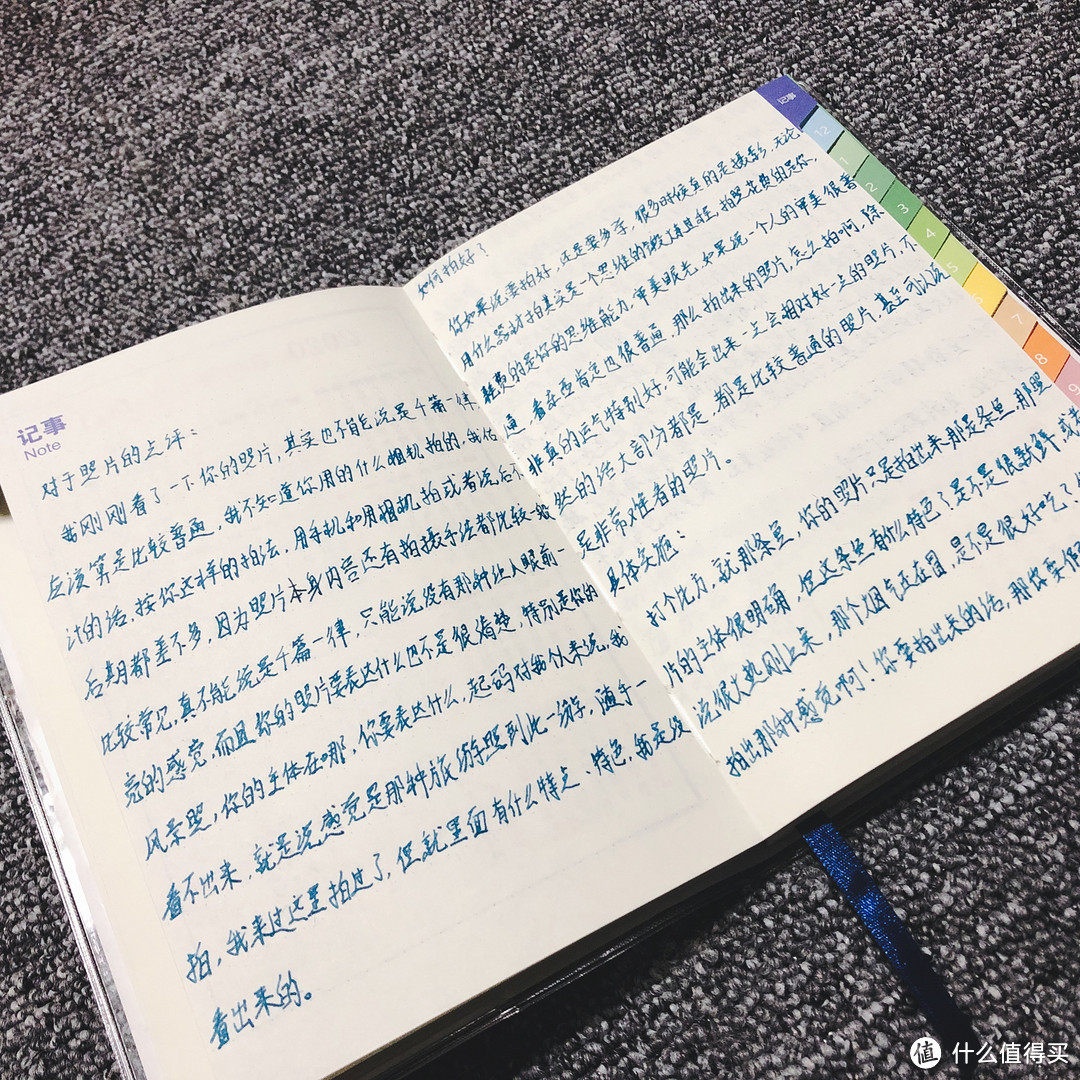 记事
Note
对于照片的点评：
我刚刚看了一下你的照片，其实也不能说是千篇一律，
应该算是比较普通，我不知道你用的什么相机拍的，我估
计的话，按你这样的拍法，用手机和用相机拍或者说后不
后期都差不多，因为照片本身内容还有拍摄手法都比较
比较常见，真不能说是千篇一律，只能说没有那种让人眼前一
亮的感觉，而且你的照片要表达什么也不是很清楚，特别是你的
风景照，你的主体在哪，你要表达什么，起码对我个人来说，我
看不出来，就是说感觉是那种旅游照到此一游，随手一
拍，我来过这里拍过了，但就里面有什么特点、特色，我是没
看出来的。
如何拍好？
你如果说要拍好，还是要多学，很多时候真的是摄影，无论
用什么器材拍其实是一个思维的过程，拍照花费的是你，
耗费的是你的思维能力，审美眼光，如果说一个人的审美很普
通，看东西肯定也很普通，那么拍出来的照片，怎么拍啊，除
非真的运气特别好，可能会出来一点会相对好一点的照片，不
然的话大部分都是，都是比较普通的照片，甚至可以说
是非常难看的照片。
具体实施：
打个比方，就那条鱼，你的照片只是拍出来那是条鱼，那照
片的主体很明确，但这条鱼有什么特色了，是不是很新鲜，或者
说很火热刚上桌，那个烟气还在冒，是不是很好吃？
拍出那种感觉啊！你要拍出来的话，那你要
记事
12
1
2
3
4
5
6
7
8
9
值 什么值得买